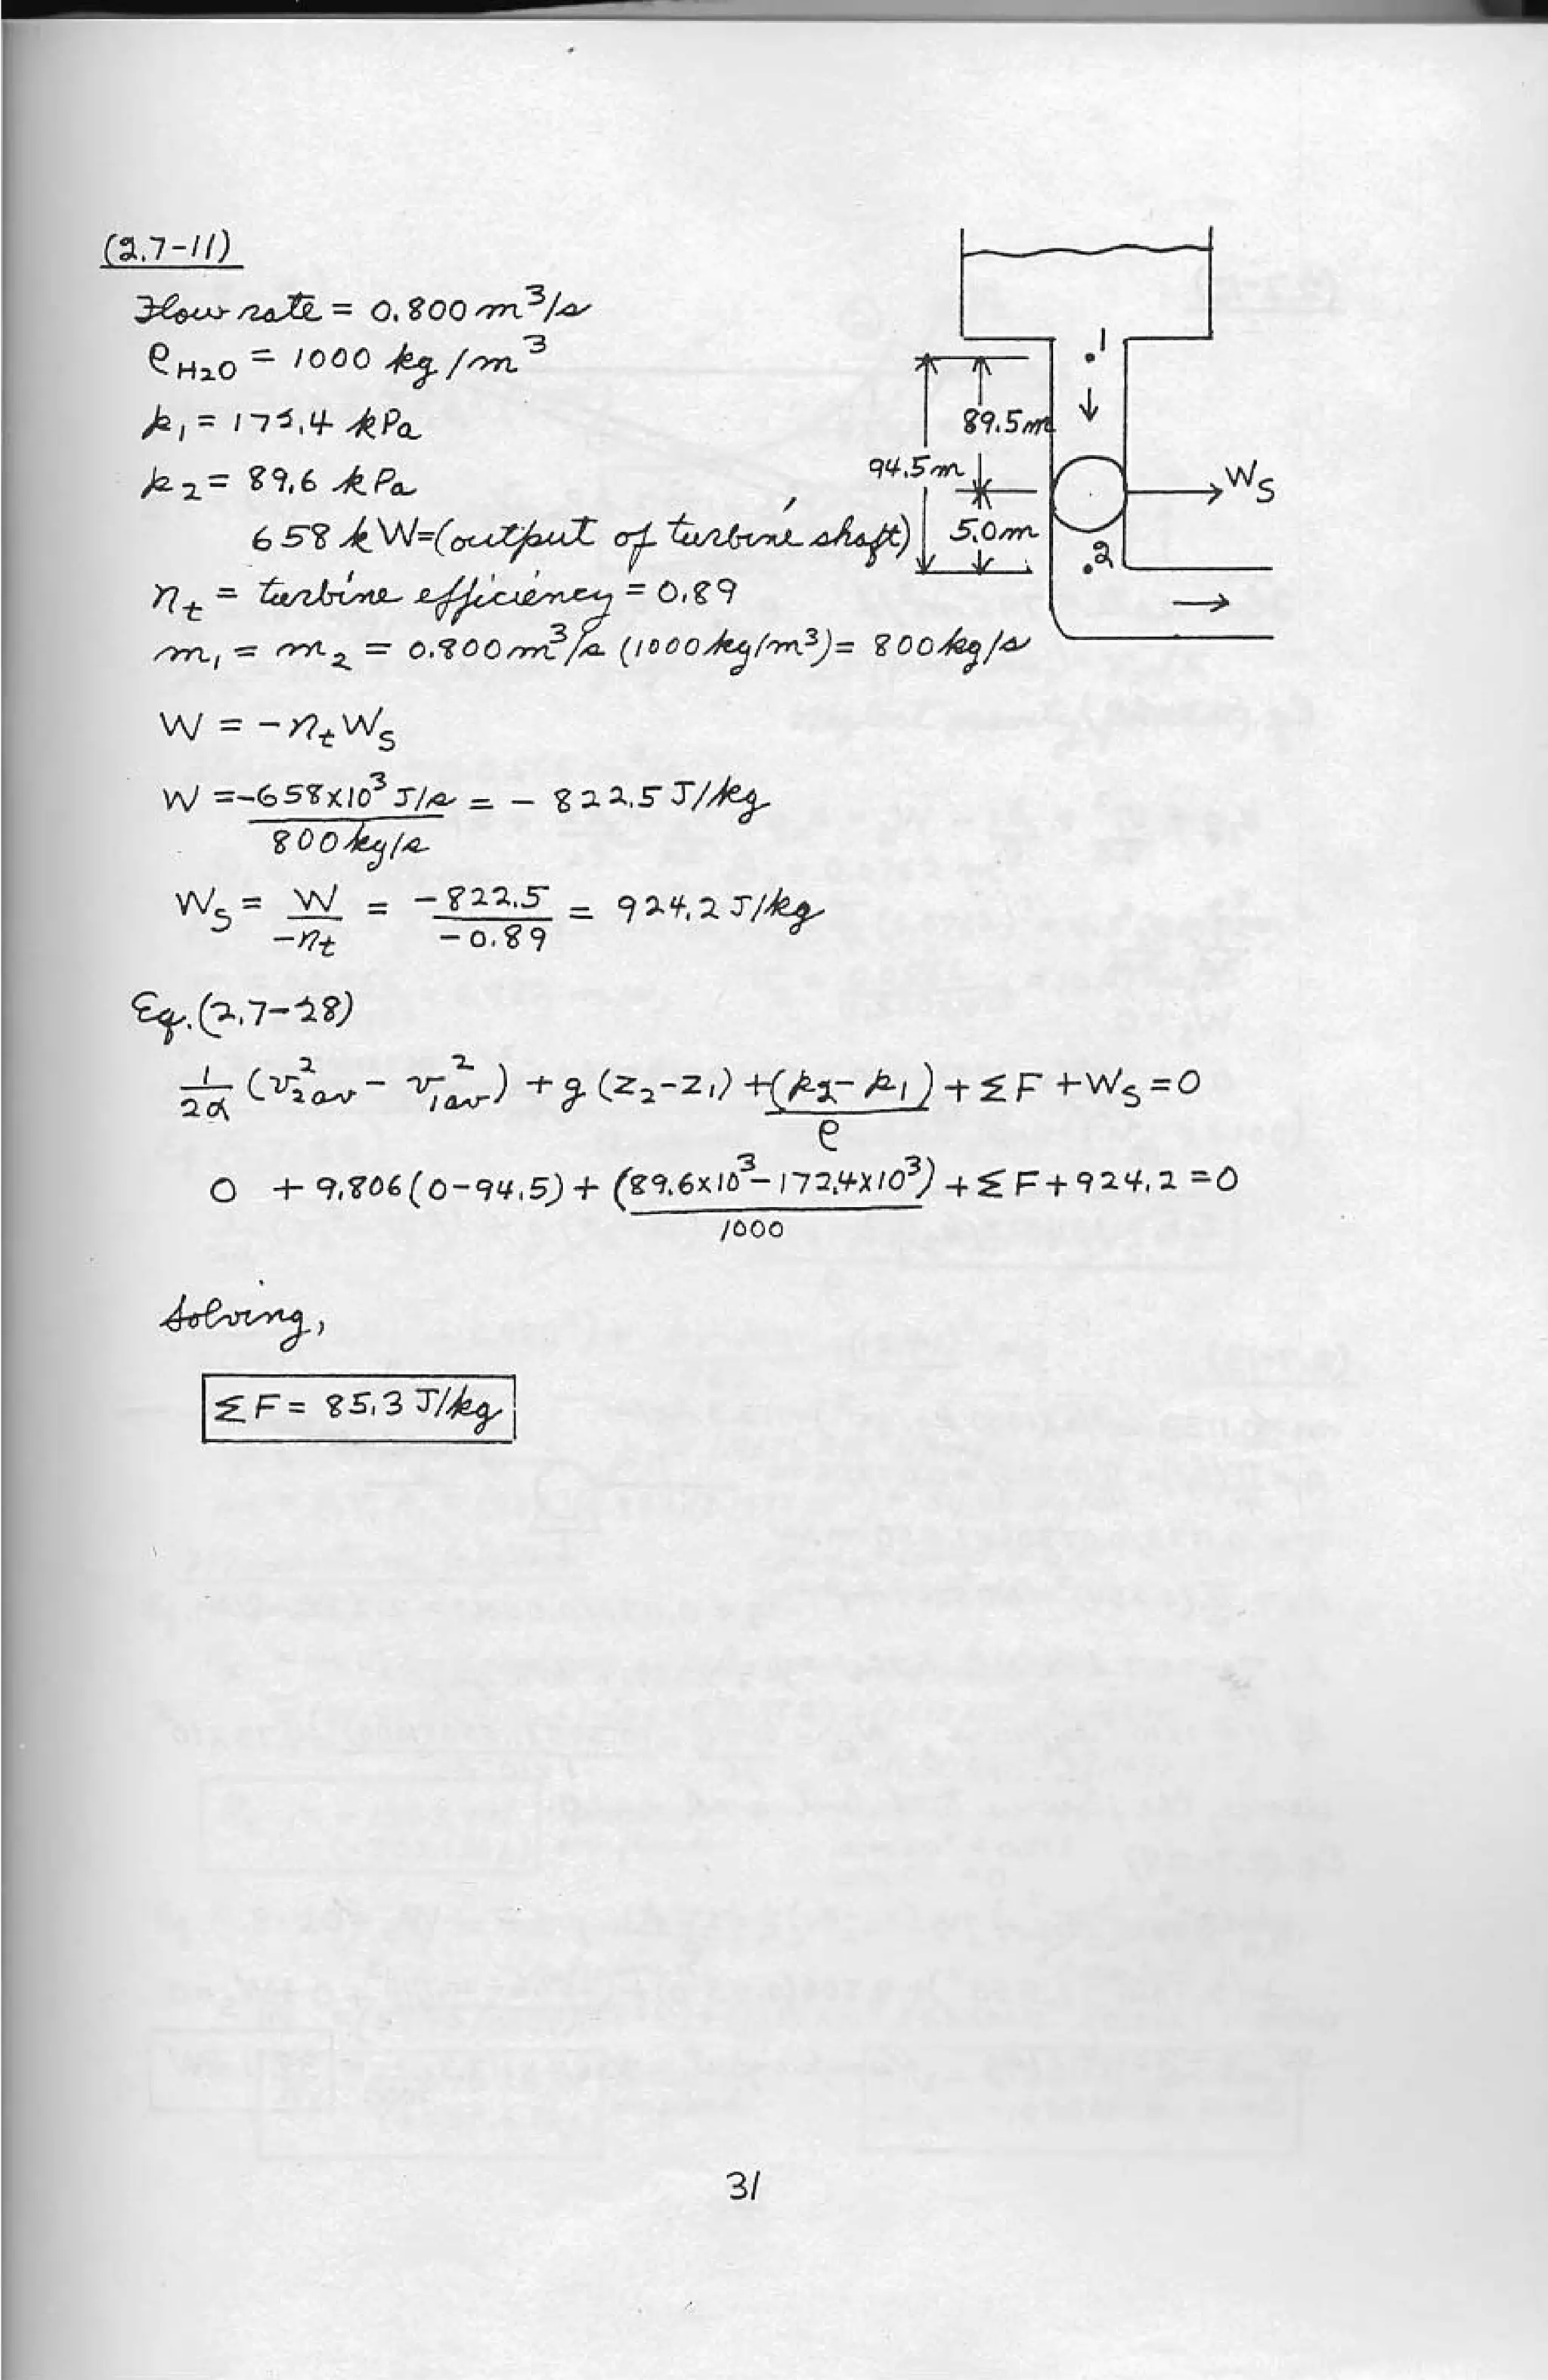 (2.7-11)
Flow rate = 0.800 m³/s
ρH₂O = 1000 kg/m³
p₁ = 172.4 kPa
p₂ = 89.6 kPa
658 kW = (output of turbine shaft)
ηt = turbine efficiency = 0.89
m₁ = m₂ = 0.800 m³/s (1000 kg/m³) = 800 kg/s
1
89.5 m
94.5 m
Ws
5.0 m
2
W = -ηt Ws
W = -658×10³ J/s / 800 kg/s = - 822.5 J/kg
Ws = W / -ηt = -822.5 / -0.89 = 924.2 J/kg
Eq. (2.7-28)
1/2α (v²₂av - v²₁av) + g (z₂-z₁) + (p₂-p₁)/ρ + ΣF + Ws = 0
0 + 9.806 (0-94.5) + (89.6×10³ - 172.4×10³)/1000 + ΣF + 924.2 = 0
Solving,
ΣF = 85.3 J/kg
31